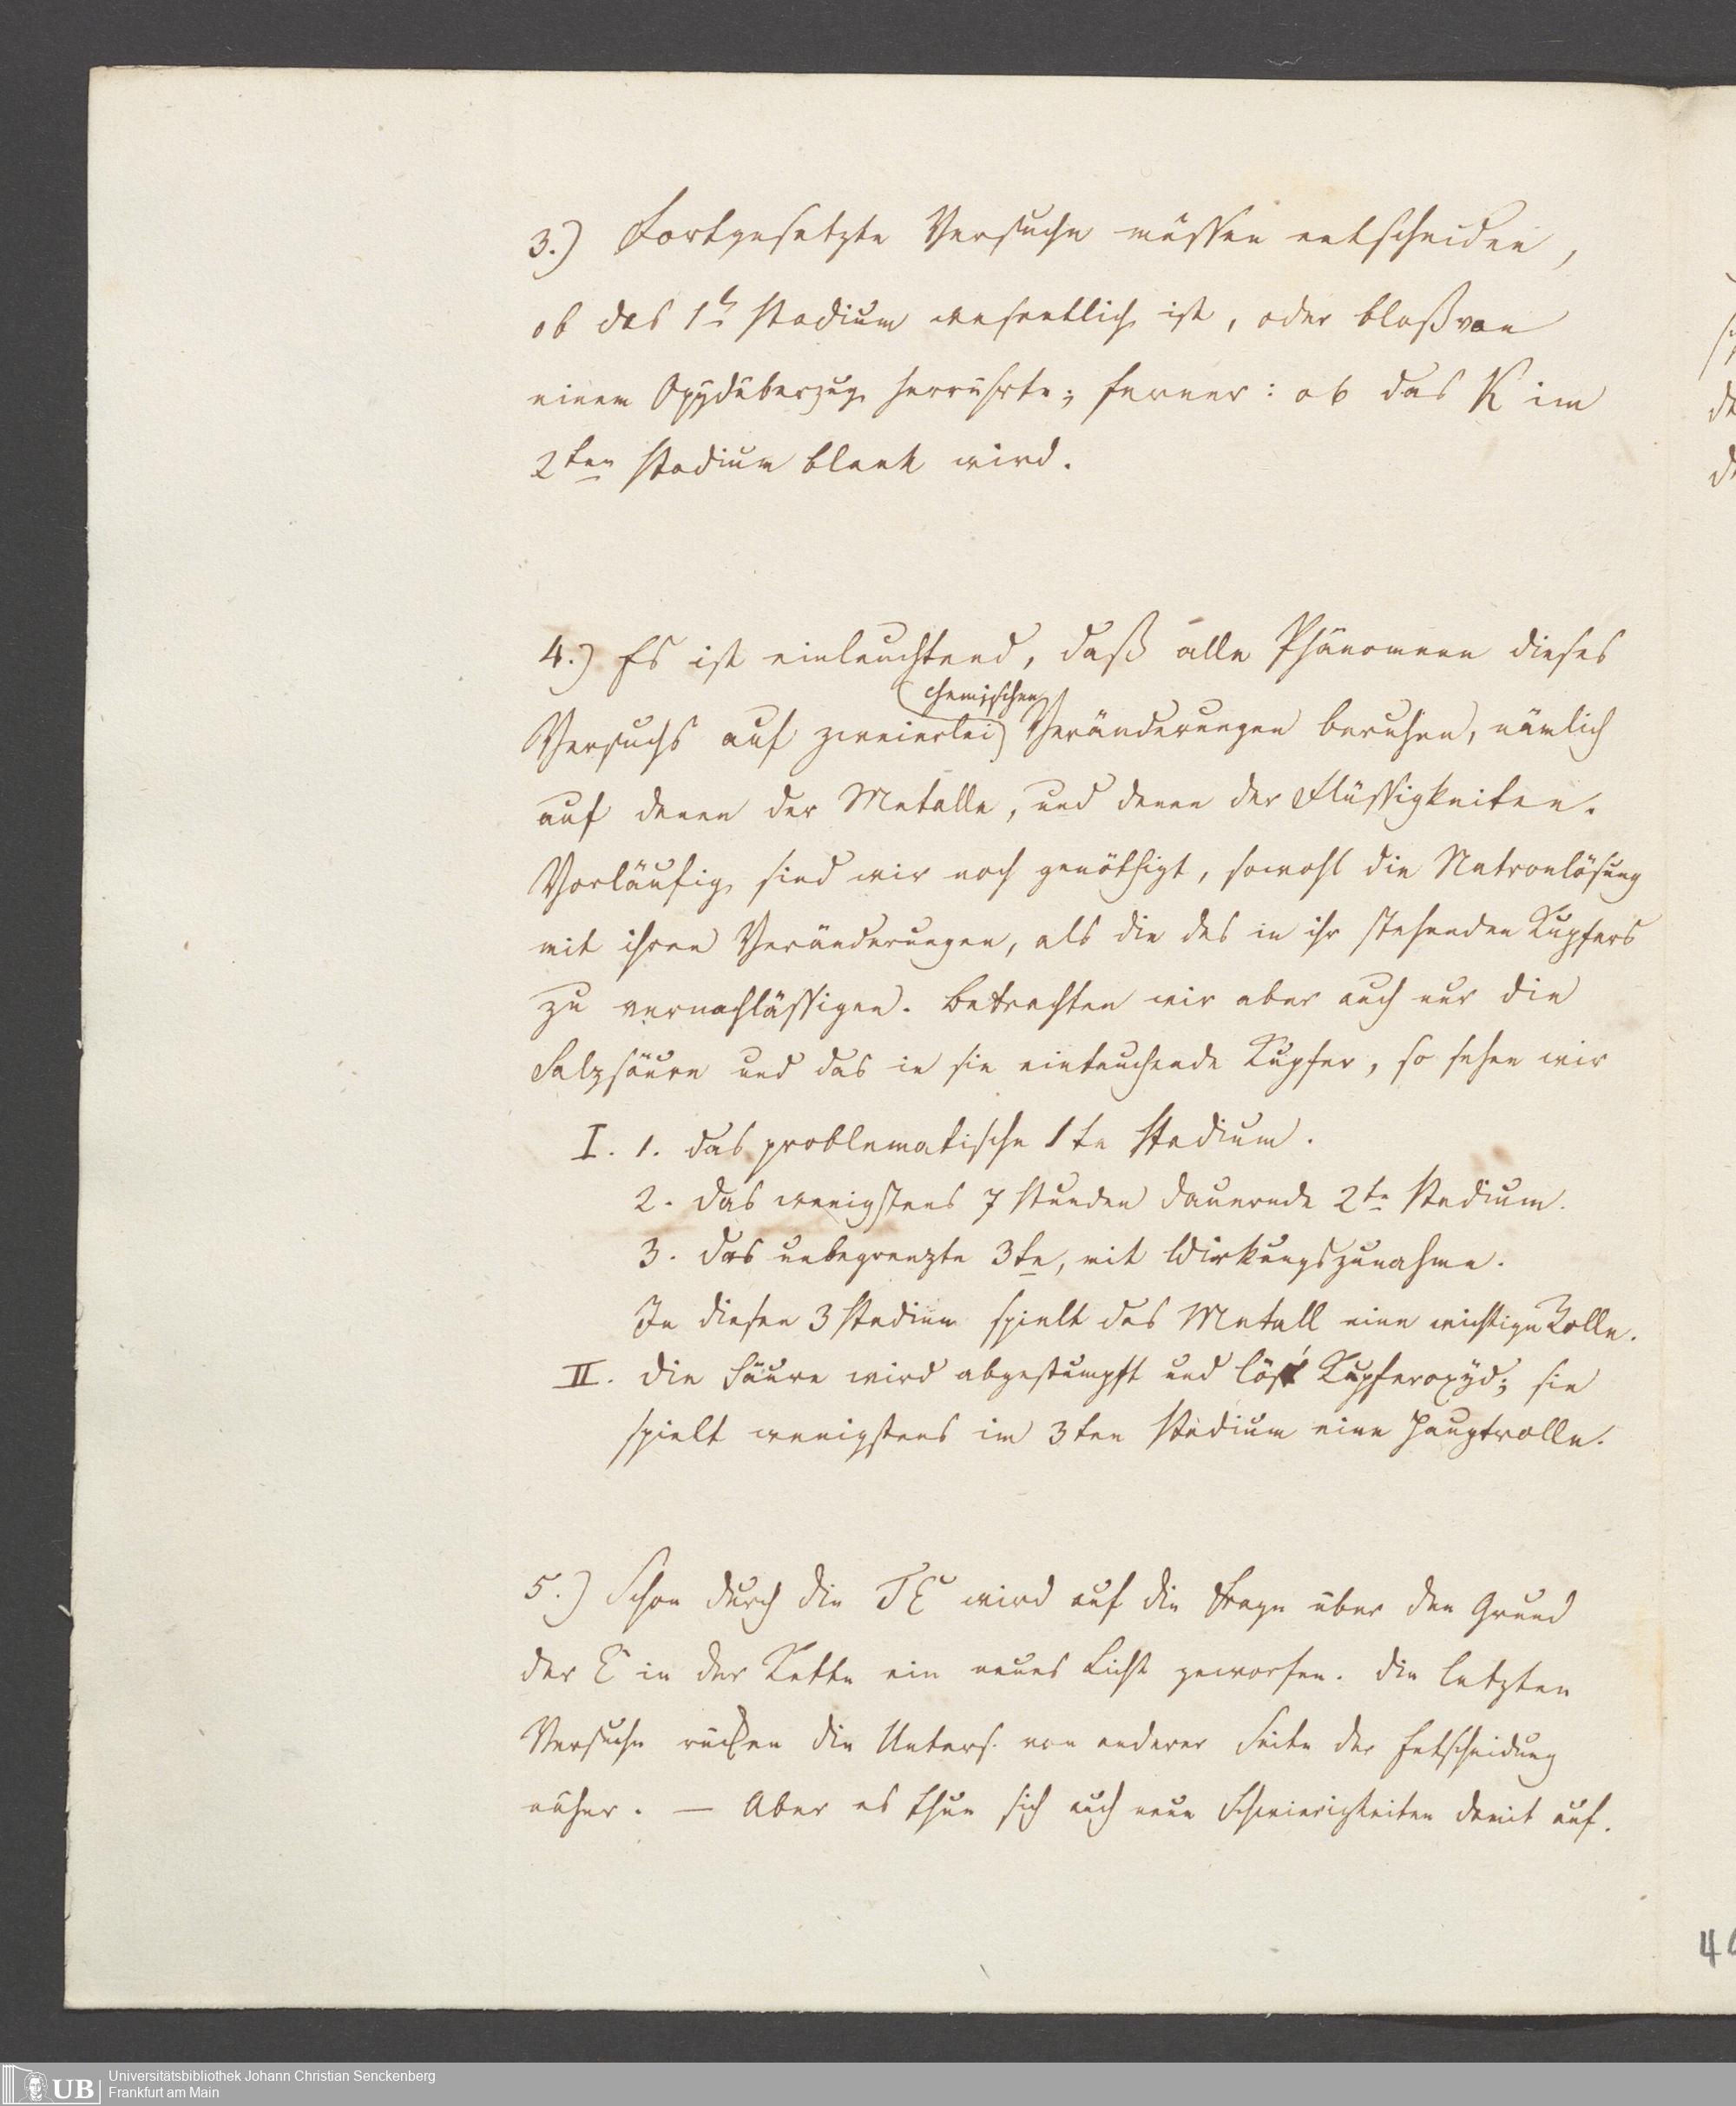 3.) Fortgesetzte Versuche müssen entscheiden,
ob das 1te Stadium wesentlich ist, oder bloß von
einem Oxydüberzug herrührte; ferner: ob das K im
2ten Stadium blank wird.
4.) Es ist einleuchtend, daß alle Phänomene dieses
chemischen
Versuchs auf zweierlei Veränderungen beruhen, nämlich
auf denen der Metalle, und denen der Flüssigkeiten.
Vorläufig sind wir noch genöthigt, sowohl die Natronlösung
mit ihren Veränderungen, als die des in ihr stehenden Kupfers
zu vernachlässigen. Betrachten wir aber auch nur die
Salzsäure und das in sie eintauchende Kupfer, so sehen wir
I. 1. das problematische 1te Stadium.
2. das wenigstens 7 Stunden dauernde 2te Stadium.
3. das unbegrenzte 3te, mit Wirkungszunahme.
In diesen 3 Stadien spielt das Metall eine wichtige Rolle.
II. Die Säure wird abgestumpft und löst Kupferoxyd; sie
spielt wenigstens im 3ten Stadium eine Hauptrolle.
5.) Schon durch die TE wird auf die Frage über den Grund
der E in der Kette ein neues Licht geworfen. Die letzten
Versuche rücken die Unters. von anderer Seite der Entscheidung
näher. — Aber es thun sich auch neue Schwierigkeiten damit auf.
de
de
40
UB
Universitätsbibliothek Johann Christian Senckenberg
Frankfurt am Main